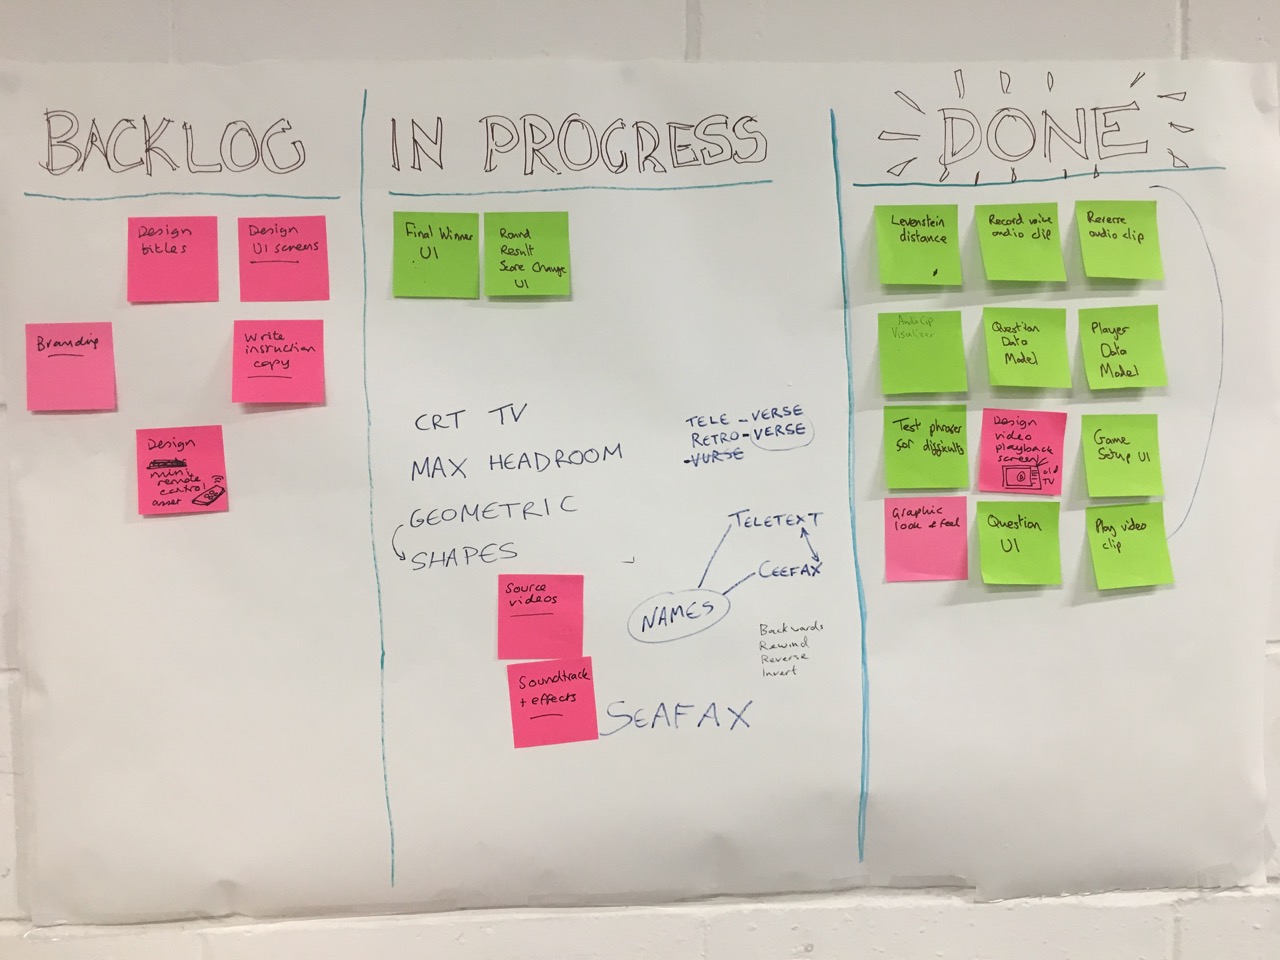 BACKLOG
Design
titles
Design
UI screens
Branding
Write
instruction
copy
Design
mini
remote
control
asset
IN PROGRESS
Final Winner
UI
Round
Result
Score Change
UI
CRT TV
MAX HEADROOM
GEOMETRIC
SHAPES
TELE-VERSE
RETRO-VERSE
-VURSE
TELETEXT
CEEFAX
NAMES
Backwards
Rewind
Reverse
Invert
Source
videos
Soundtrack
+ effects
SEAFAX
DONE
Levenstein
distance
Record voice
audio clip
Reverse
audio clip
Audio Clip
Visualizer
Question
Data
Model
Player
Data
Model
Test phrases
for difficulty
Design
video
playback
screen
old
TV
Game
Setup UI
Graphic
look & feel
Question
UI
Play video
clip